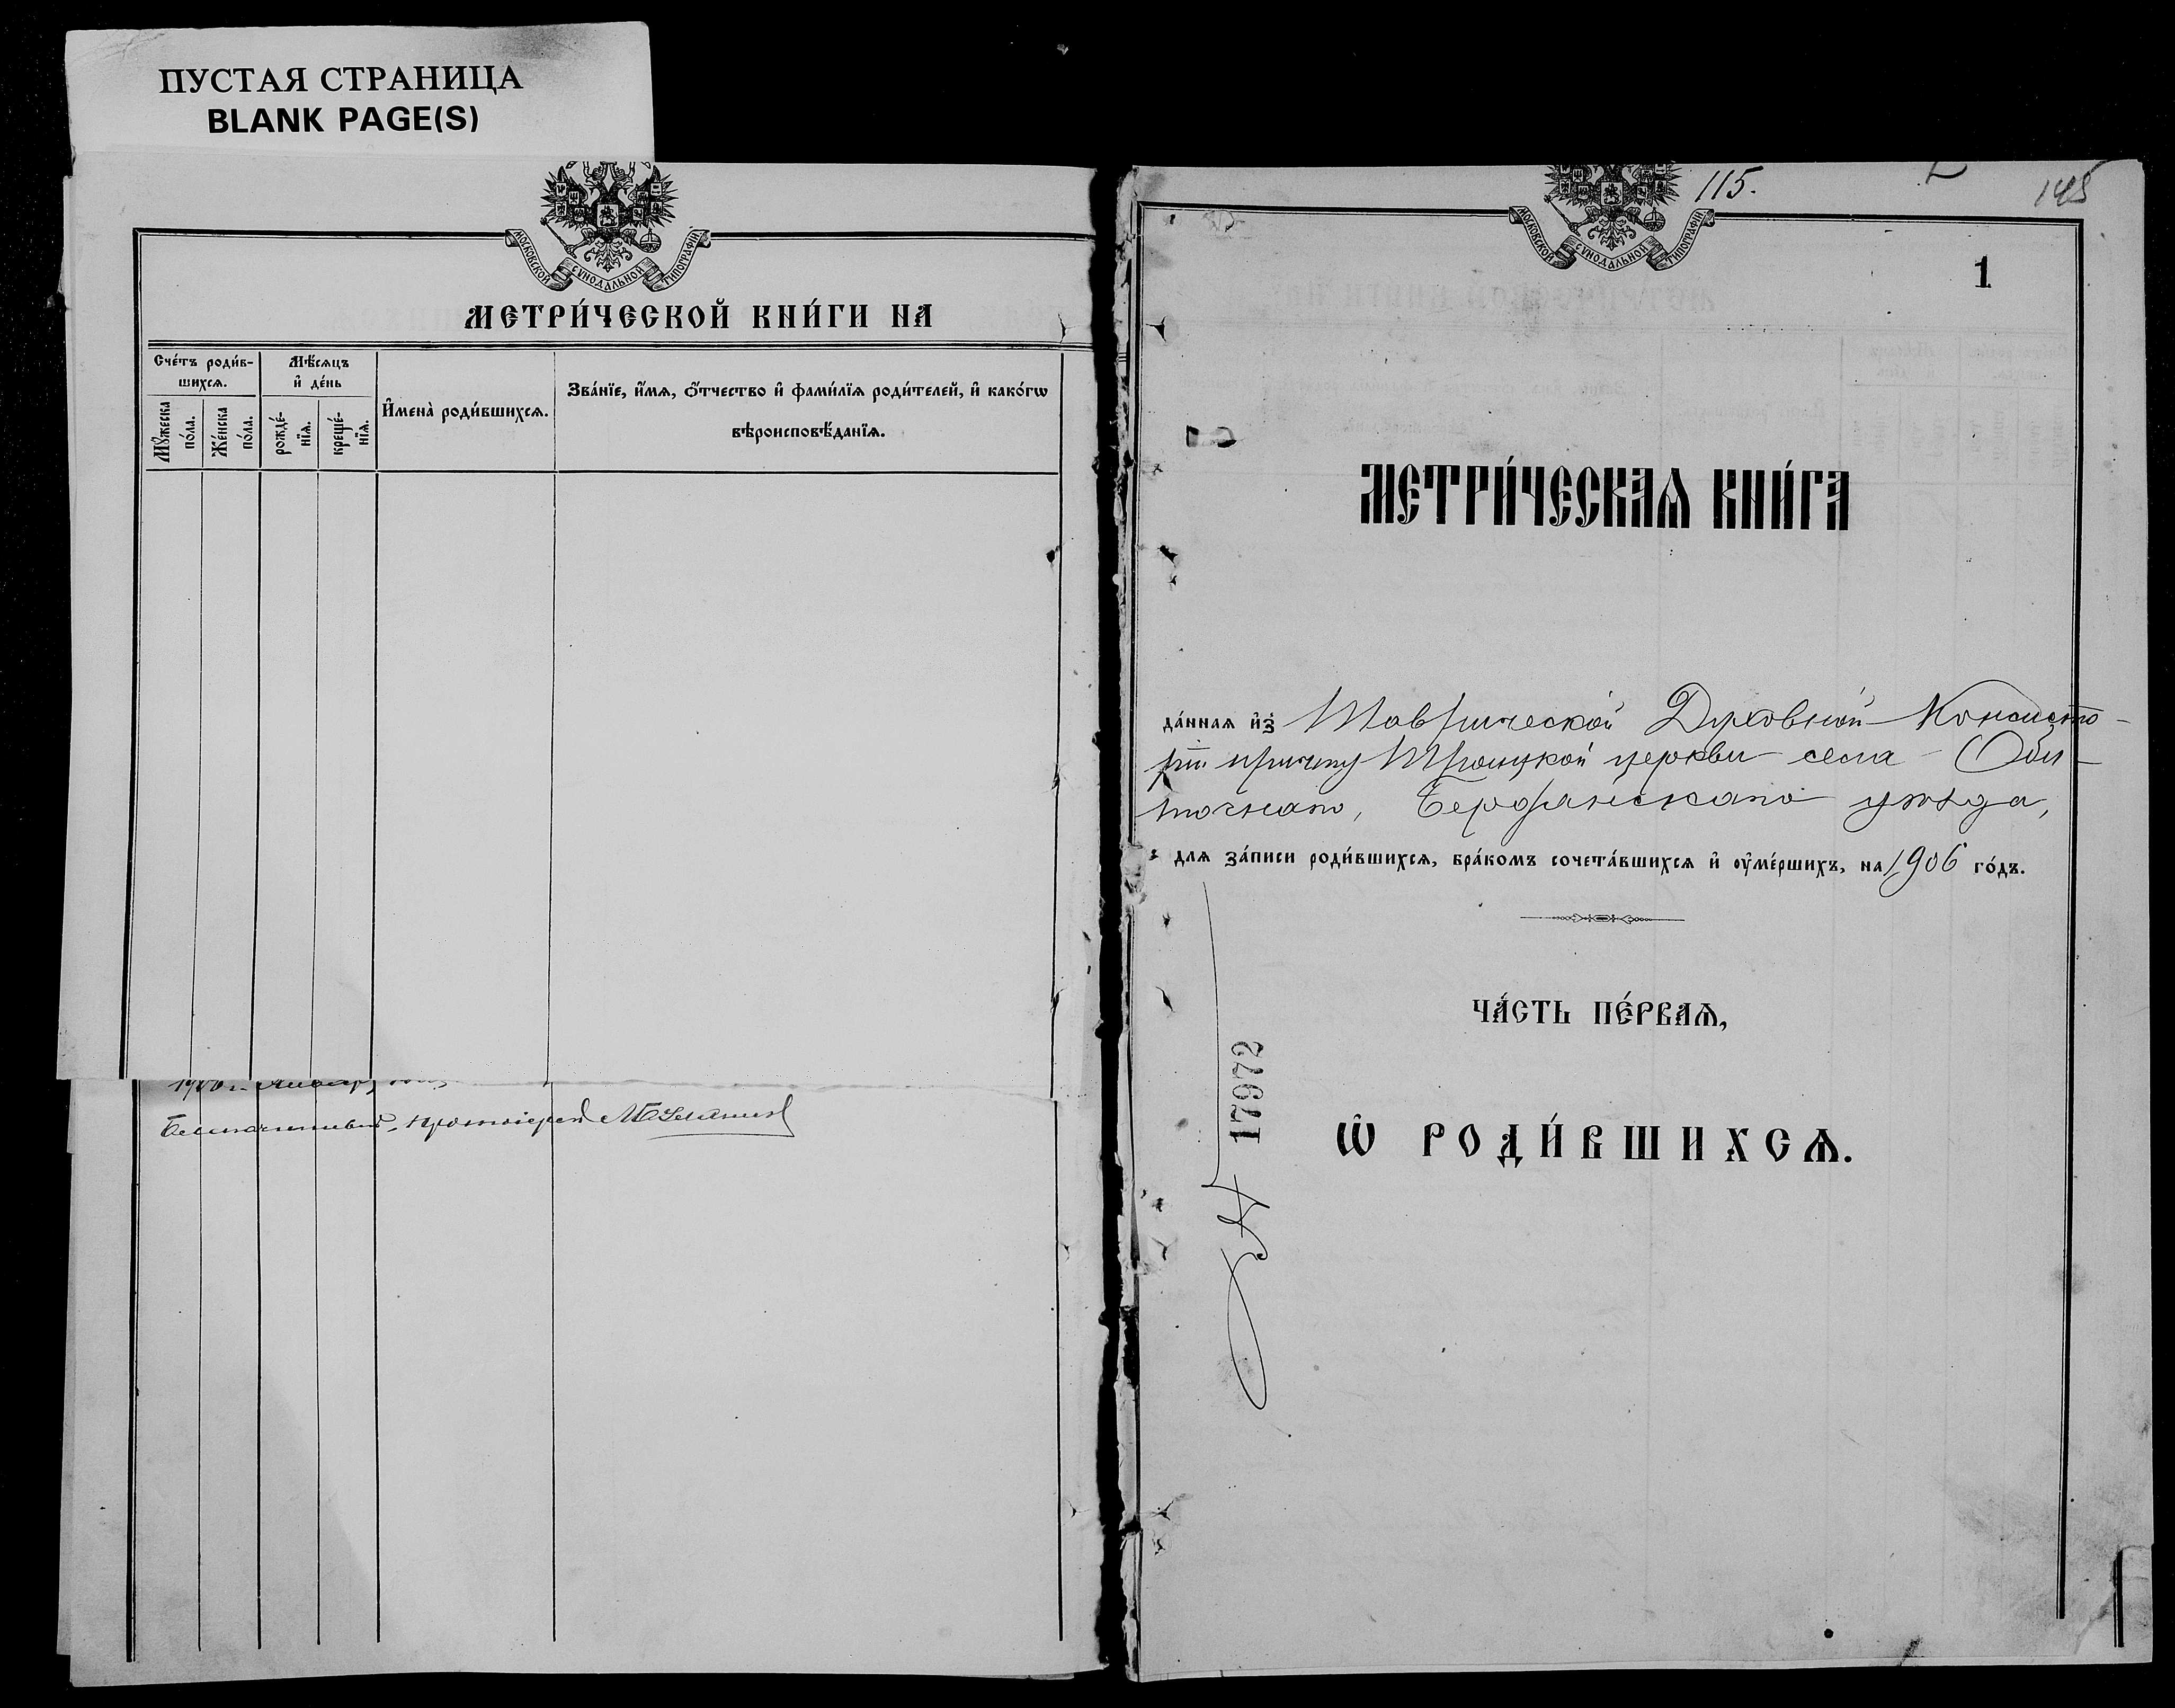 ПУСТАЯ СТРАНИЦА
BLANK PAGE(S)
МОСКОВСКОЙ СѴНОДАЛЬНОЙ ТИПОГРАФІИ
МЕТРИ́ЧЕСКОЙ КНИ́ГИ НА
Сче́тъ роди́в-
шихсѧ.
Мѣ́сѧцъ
и҆ де́нь
И҆мена̀ роди́вшихсѧ.
Зва́нїе, и҆́мѧ, ѻ҆́тчество и҆ фами́лїѧ роди́телей, и҆ како́гѡ
вѣроисповѣ́данїѧ.
Мꙋ́жеска
по́ла.
Же́нска
по́ла.
рожде́-
нїѧ.
креще́-
нїѧ.
Благочинный, протоіерей
115.
145
МОСКОВСКОЙ СѴНОДАЛЬНОЙ ТИПОГРАФІИ
1
МЕТРИ́ЧЕСКАѦ КНИ́ГА
да́ннаѧ и҆з̾ Таврической Духовной Консисто-
ріи причту Троицкой церкви села Оби-
точнаго, Бердянскаго уѣзда,
для за́писи роди́вшихсѧ, бра́комъ сочета́вшихсѧ и҆ оу҆ме́ршихъ, на 1906 го́дъ.
ЧА́СТЬ ПЕ́РВАѦ,
17972
Ѡ҆ РОДИ́ВШИХСѦ.